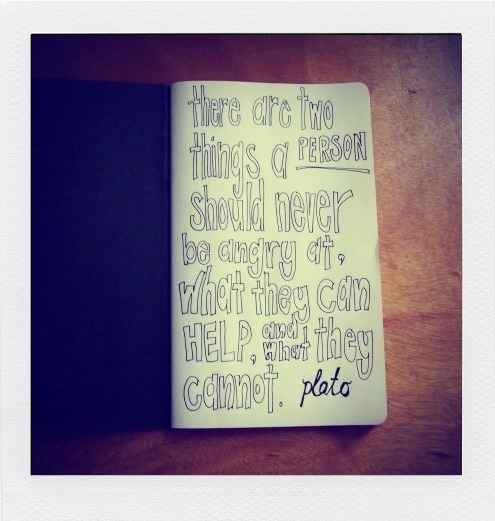 there are two
things a PERSON
should never
be angry at,
what they can
HELP, and what they
cannot. plato